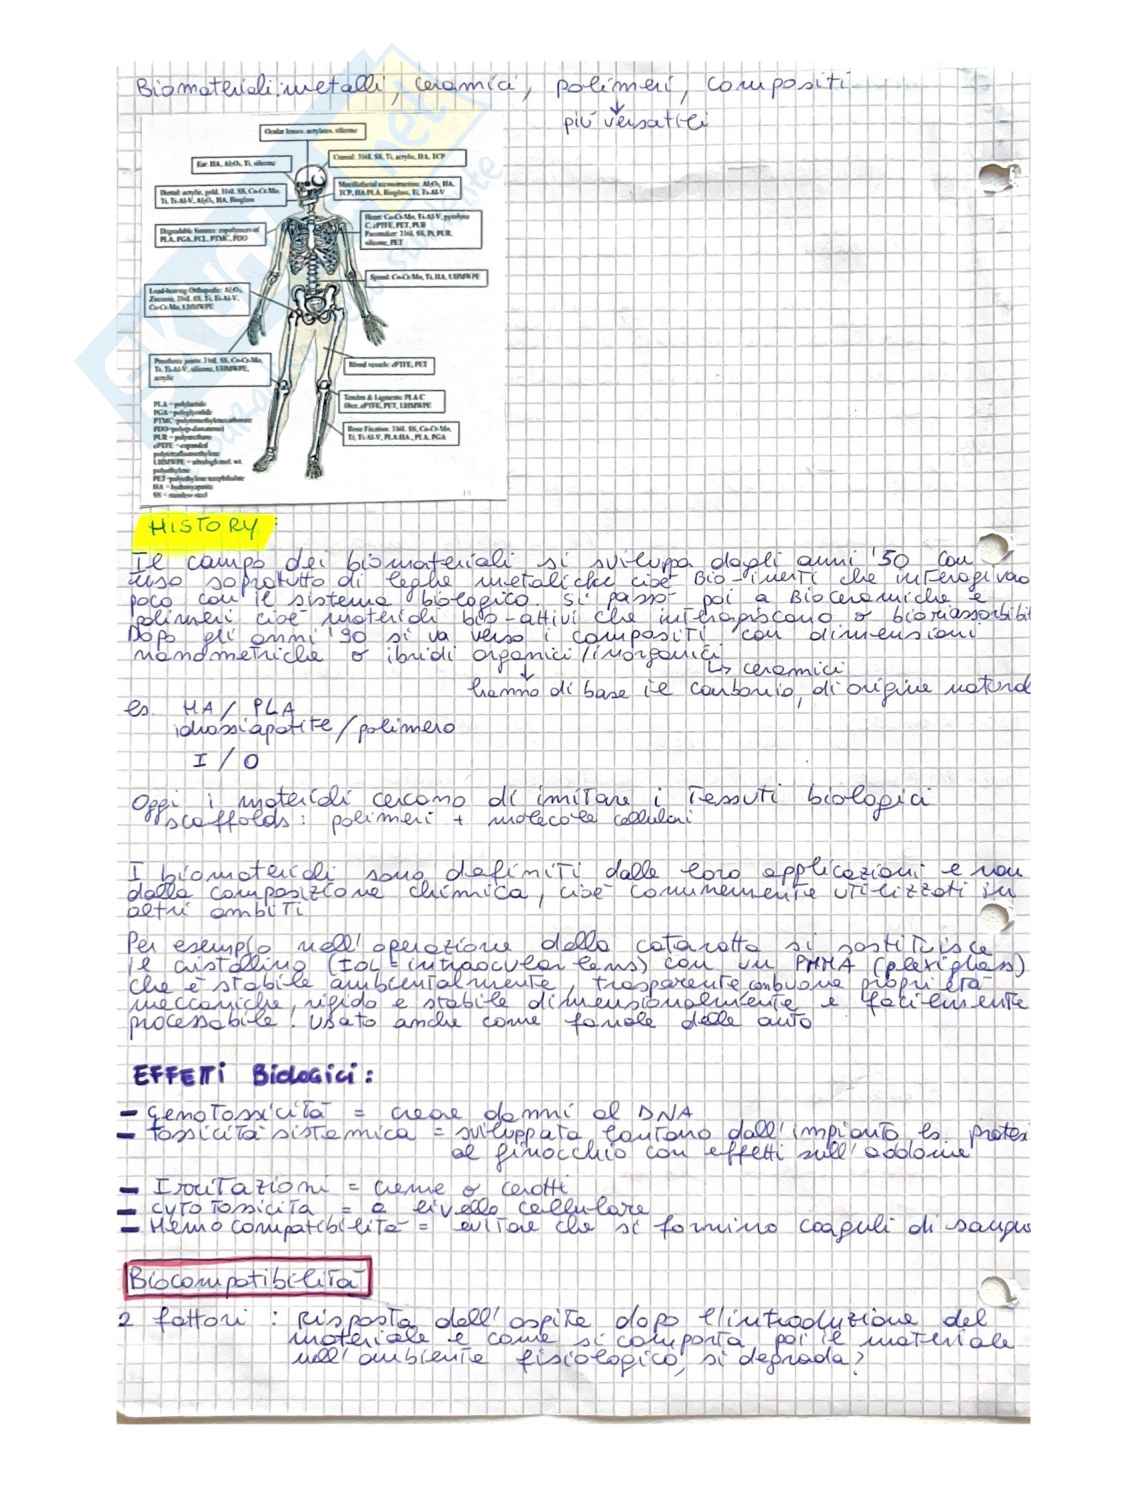 Biomateriali: metalli, ceramici, polimeri, compositi
↓
più versatili
Ocular lenses: acrylates, silicone
Ear: HA, Al₂O₃, Ti, silicone
Cranial: 316L SS, Ti, acrylic, HA, TCP
Dental: acrylic, gold, 316L SS, Co-Cr-Mo,
Ti, Ti-Al-V, Al₂O₃, HA, Bioglass
Maxillofacial reconstruction: Al₂O₃, HA,
TCP, HA/PLA, Bioglass, Ti, Ti-Al-V
Degradable Sutures: copolymers of
PLA, PGA, PCL, PTMC, PDO
Heart: Co-Cr-Mo, Ti-Al-V, pyrolytic
C, ePTFE, PET, PUR
Pacemaker: 316L SS, Pt, PUR,
silicone, PET
Spinal: Co-Cr-Mo, Ti, HA, UHMWPE
Load-bearing Orthopedic: Al₂O₃,
Zirconia, 316L SS, Ti, Ti-Al-V,
Co-Cr-Mo, UHMWPE
Prosthetic joints: 316L SS, Co-Cr-Mo,
Ti, Ti-Al-V, silicone, UHMWPE,
acrylic
Blood vessels: ePTFE, PET
Tendon & Ligments: PLA/C
fiber, ePTFE, PET, UHMWPE
Bone Fixation: 316L SS, Co-Cr-Mo,
Ti, Ti-Al-V, PLA/HA, PLA, PGA
PLA = polylactide
PGA = polyglycolide
PTMC = polytrimethylenecarbonate
PDO = poly(p-dioxanone)
PUR = polyurethane
ePTFE = expanded
polytetrafluoroethylene
UHMWPE = ultrahigh mol. wt.
polyethylene
PET = polyethylene terephthalate
HA = hydroxyapatite
SS = stainless steel
HISTORY:
Il campo dei biomateriali si sviluppa dagli anni '50 con
l'uso sopratutto di leghe metalliche cioè Bio-inerti che interagivano
poco con il sistema biologico, si passò poi a Bioceramiche e
polimeri cioè materiali bio-attivi che interagiscono o bioriassorbibil
Dopo gli anni '90 si va verso i compositi con dimensioni
nanometriche o ibridi organici/inorganici
↓ ↳ ceramici
hanno di base il carbonio, di origine natural
es. HA/PLA
idrossiapatite/polimero
I / O
Oggi i materiali cercano di imitare i tessuti biologici
scaffolds: polimeri + molecole cellulari
I biomateriali sono definiti dalle loro applicazioni e non
dalla composizione chimica, cioè comunemente utilizzati in
altri ambiti
Per esempio nell'operazione della cataratta si sostituisce
il cristallino (IOL = intraocular lens) con un PMMA (plexiglass)
che è stabile ambientalmente, trasparente con buone proprietà
meccaniche, rigido e stabile dimensionalmente e facilmente
processabile. Usato anche come fanale delle auto
EFFETTI Biologici:
- Genotossicità = creare danni al DNA
- tossicità sistemica = sviluppata lontano dall'impianto es. protesi
al ginocchio con effetti sull'addome
- Irritazioni = creme o cerotti
- cytotossicità = a livello cellulare
- Hemocompatibilità = evitare che si formino coaguli di sangue
Biocompatibilità
2 fattori: Risposta dell'ospite dopo l'introduzione del
materiale e come si comporta poi il materiale
nell'ambiente fisiologico, si degrada?